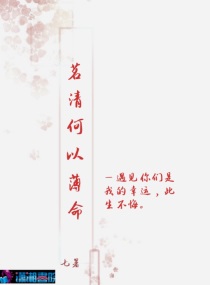 茗清何以薄命
一遇见你们是
我的幸运，此
生不悔。
七茗